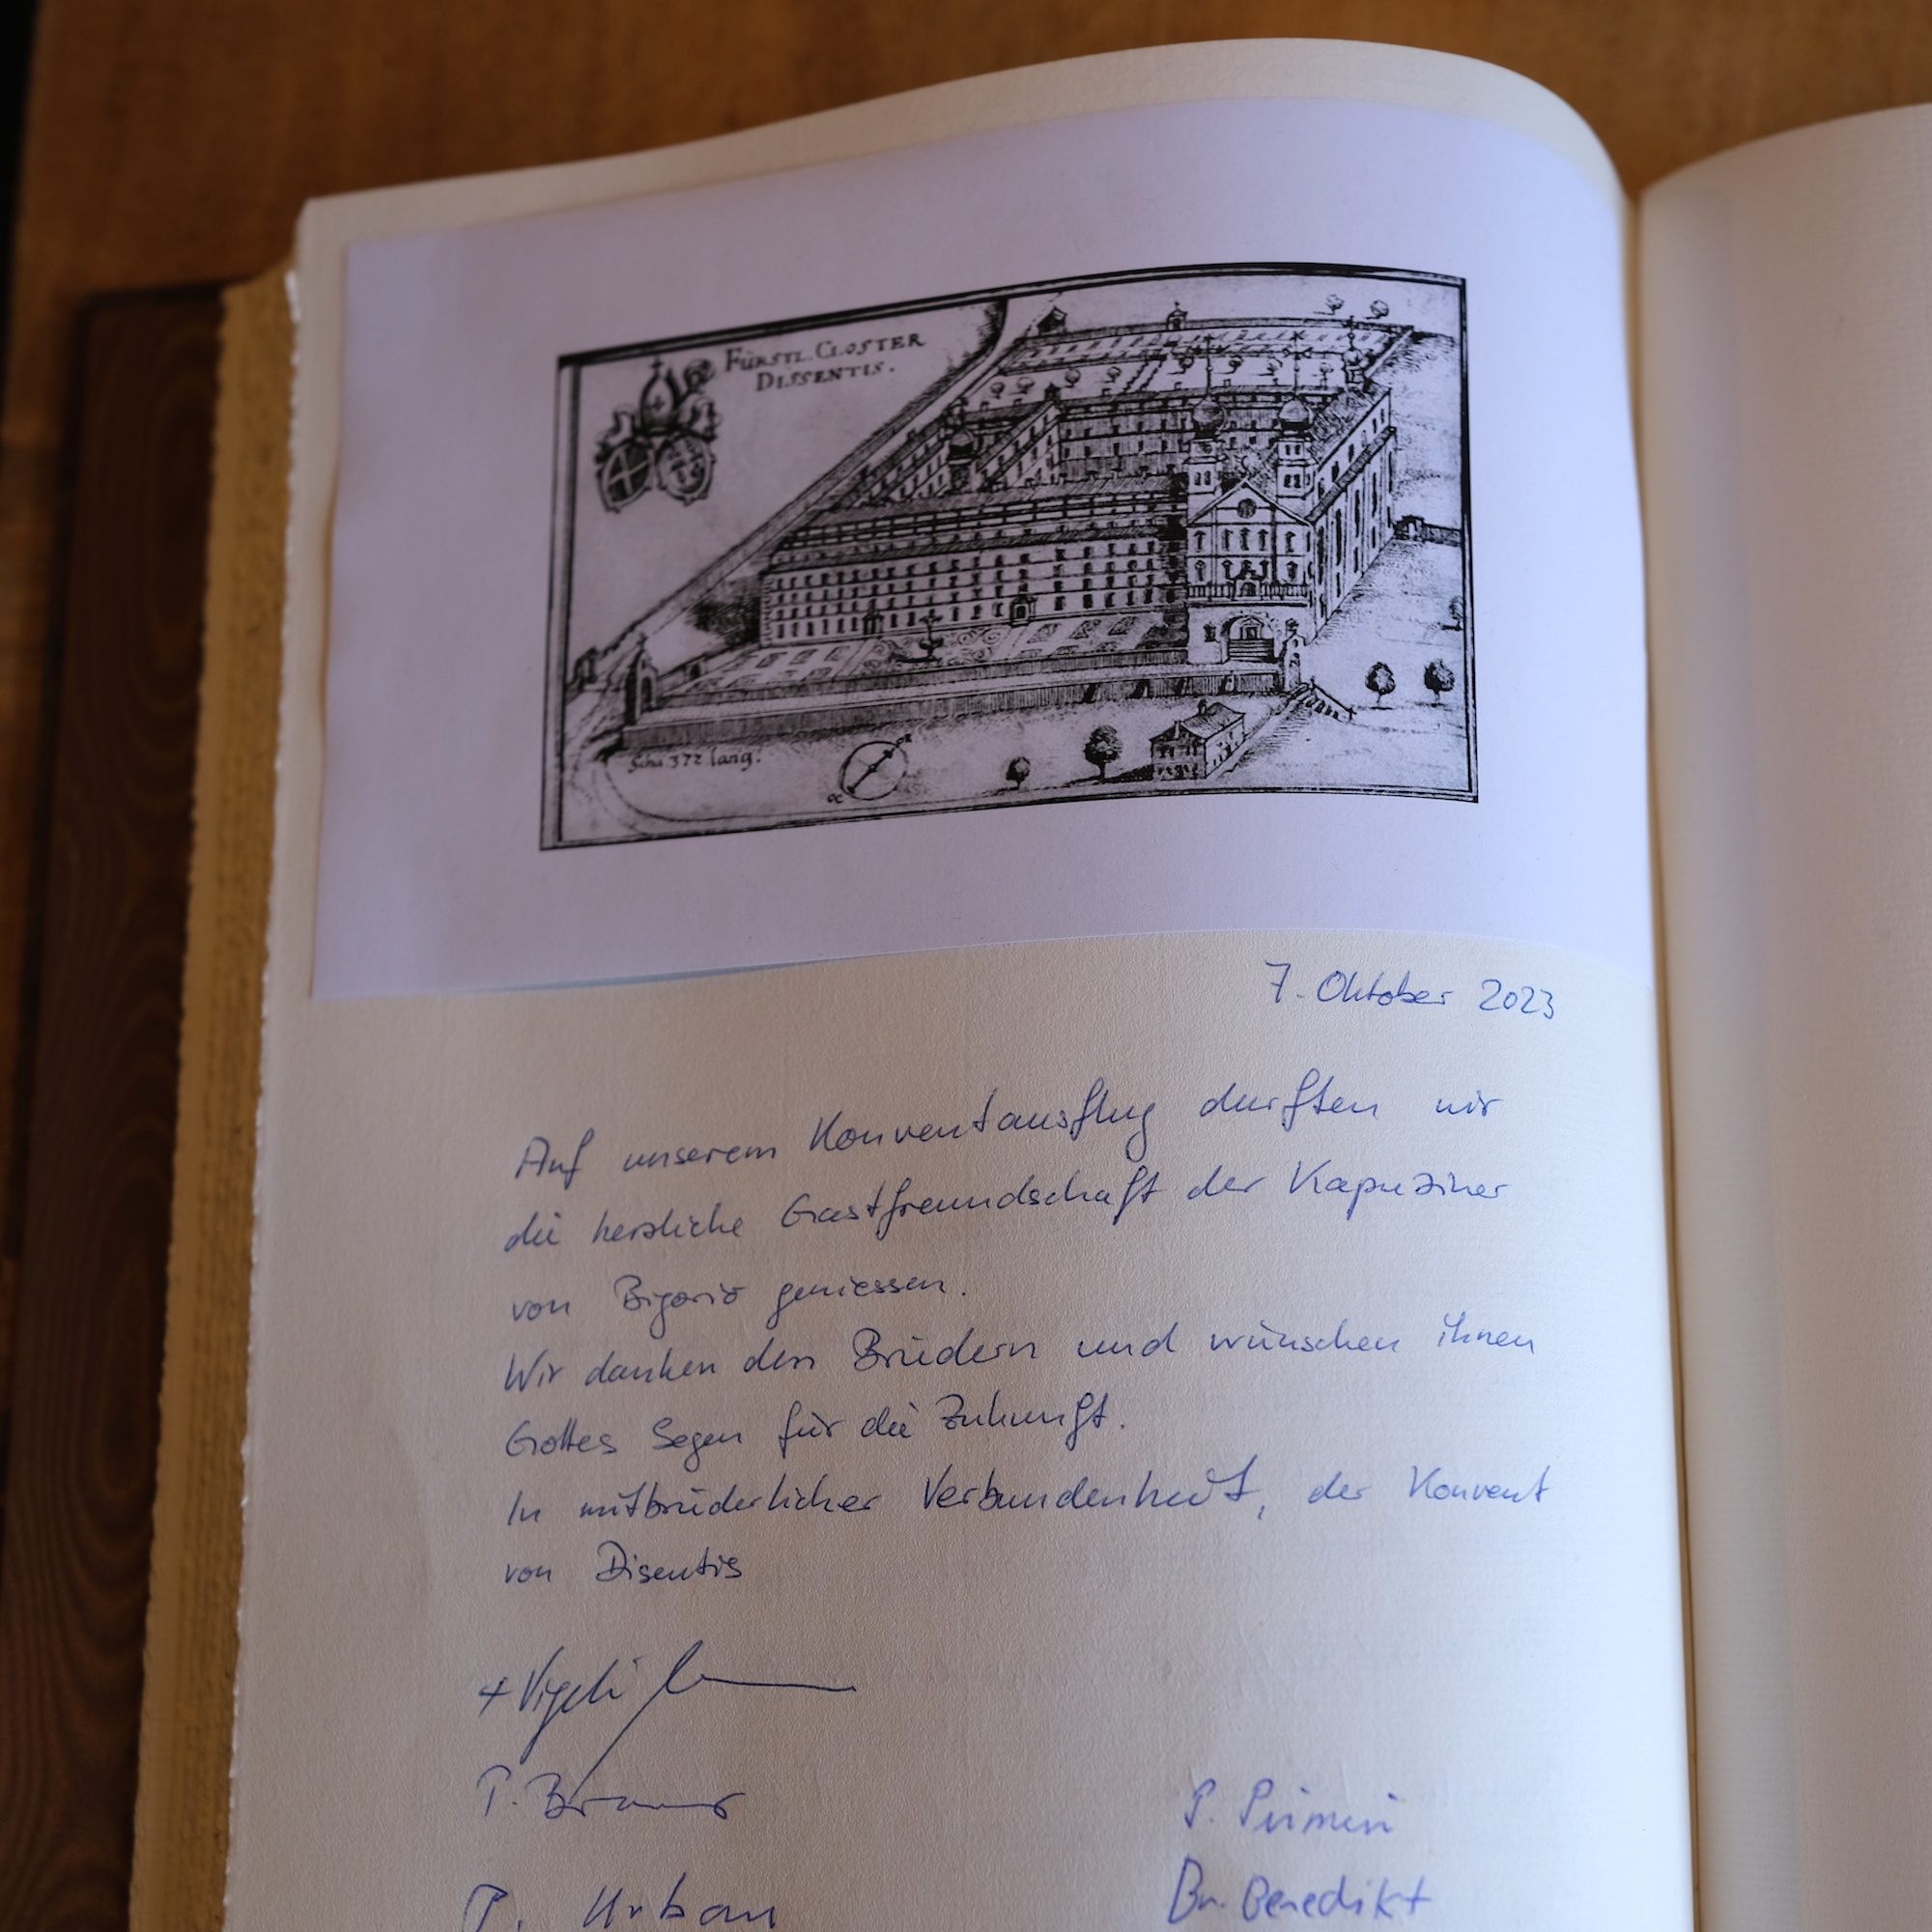 FÜRSTL. CLOSTER
DISSENTIS.
372 lang.
7. Oktober 2023
Auf unserem Konventausflug durften wir
die herzliche Gastfreundschaft der Kapuziner
von Bigorio geniessen.
Wir danken den Brüdern und wünschen ihnen
Gottes Segen für die Zukunft.
In mitbrüderlicher Verbundenheit, der Konvent
von Disentis
+ Vigeli
P.
P. Pirmin
P. Urban
Br. Benedikt